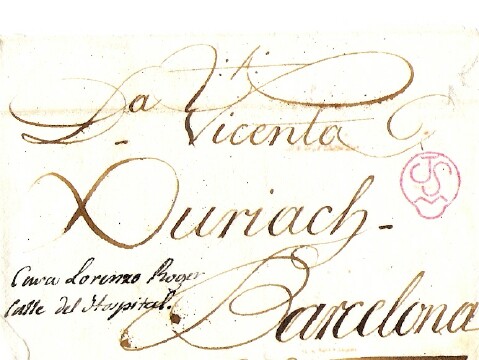 Da
Vicenta
Duriach-
Casa Lorenzo Roger
Calle del Hospital.
Barcelona